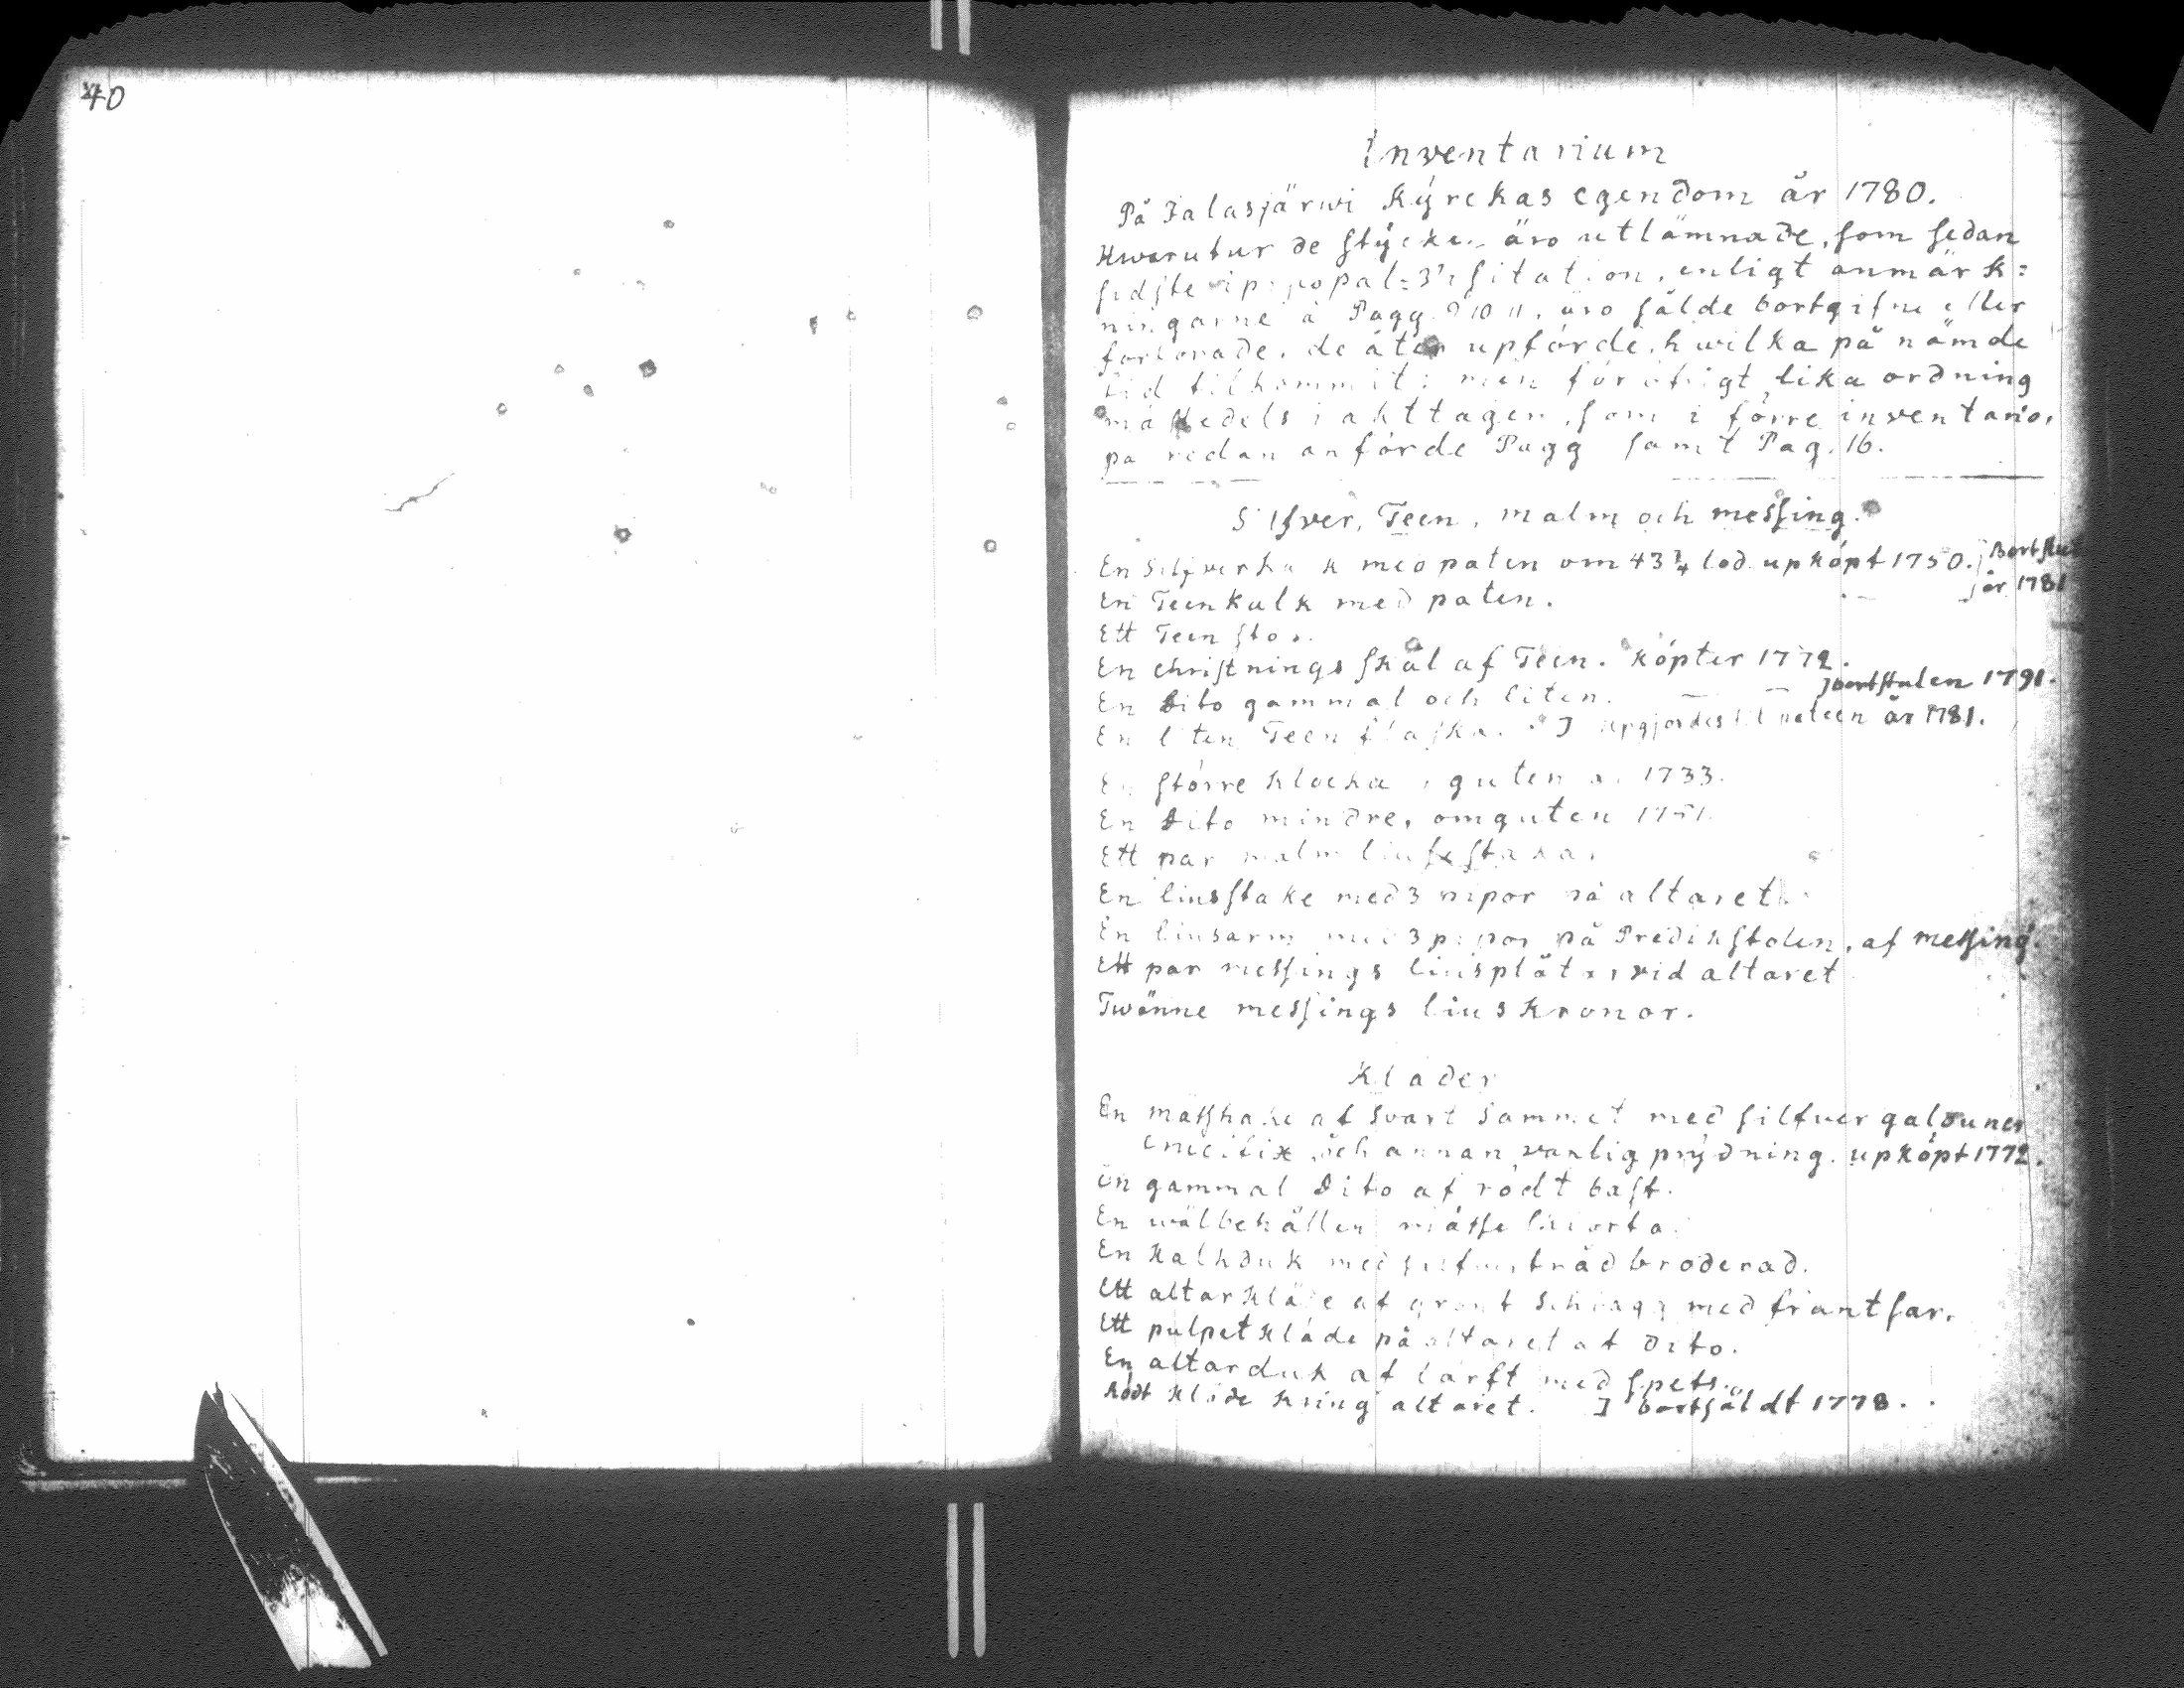 40
Inventarium
På Jalasjärwi Kyrckas egendom år 1780.
Hwarutur de stycken äro utlämnade, som sedan
sidste
ningarne å Pagg. 9 10 11. äro sålde bortgifne eller
forlorade. de åter upförde, hwilka på nämde
tid tilkommit: men för öfrigt lika ordning
måttedels i akttagen, som i förre inventario,
på redan anförde Pagg samt Pag. 16.
Silfver, Teen, malm och messing.
En Silfverkalk med paten om 43 3/4 lod. upköpt 1750. Bortstul
år 1781
En Teenkalk med paten.
Ett Teenstop.
En christnings skål af Teen. köpter 1772.
En dito gammal och liten. bortstulen 1791.
En liten Teen flaska. upgjordes till år 1781.
En större klocka, guten a. 1733.
En dito mindre, omguten 1751.
Ett par malm liusestakar
En liusstake med 3 pipor på altaret
En liusarm med 3 pipor på Predikstolen, af messing.
Ett par messings liusplåtar vid altaret
Twänne messings liuskronor.
Kläder
En mässhake af svart Sammet med silfver galouner
crucifix och annan vanlig prydning. upköpt 1772.
En gammal dito af rödt bast.
En wälbehållen mässe skiorta.
En Kalkduk med silfvertråd broderad.
Ett altarkläde af grönt Schagg med frantsar.
Ett pulpetkläde på altaret af dito.
En altarduk af lärft med spets.
Rödt kläde kring altaret. bortsåldt 1778.